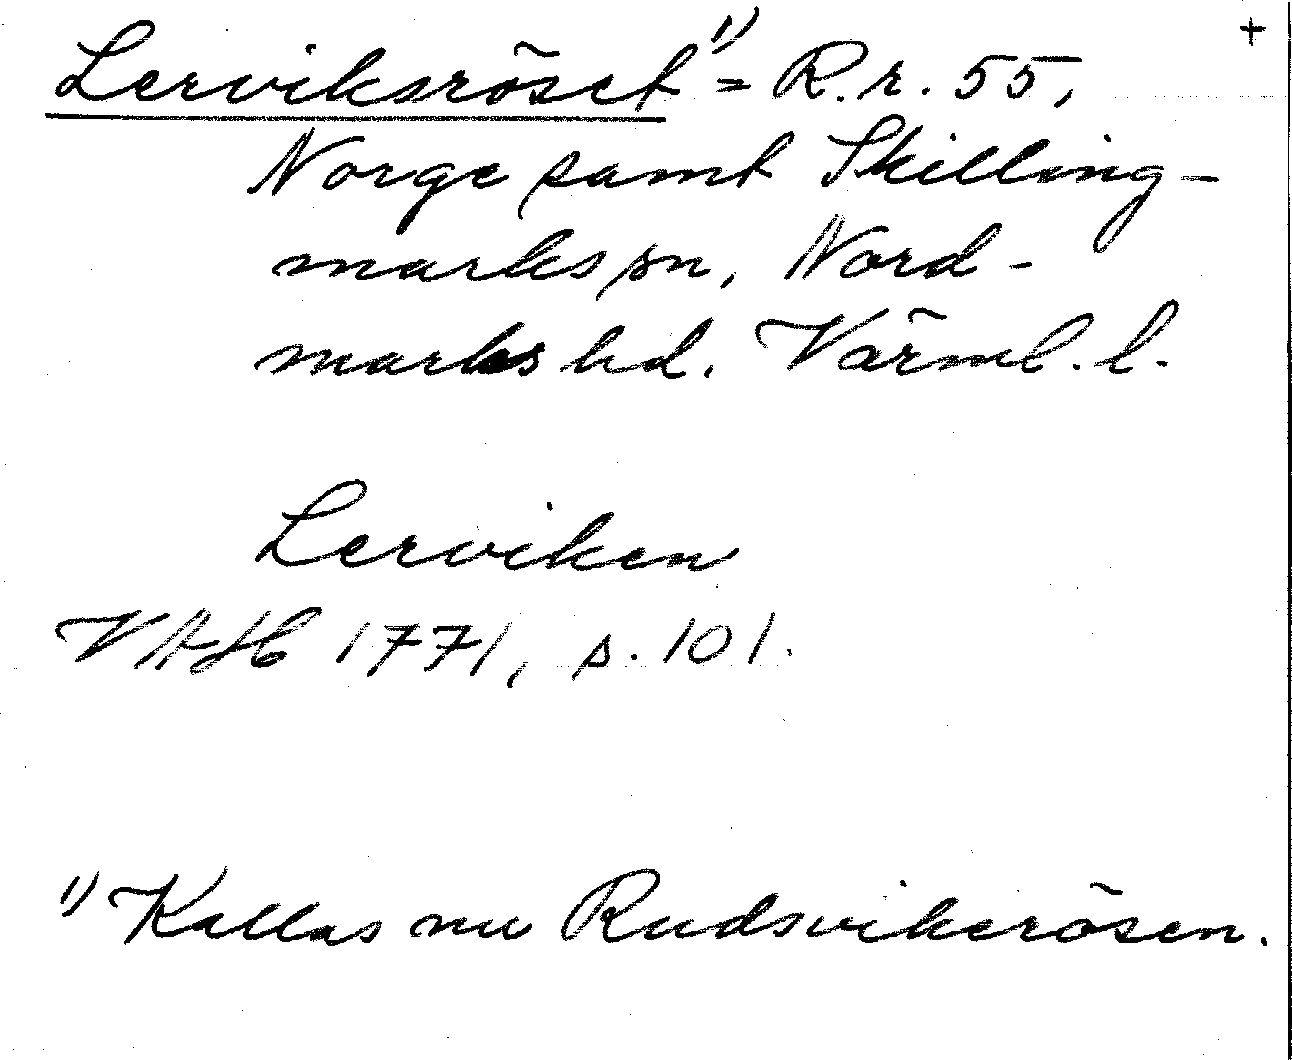 +
Lerviksröset ¹) = R.r. 55,
Norge samt Skilling-
marks sn, Nord-
marks hd. Värml. l.
Lerviken
VAH 1771, s. 101.
¹) Kallas nu Rudsvikerösen.